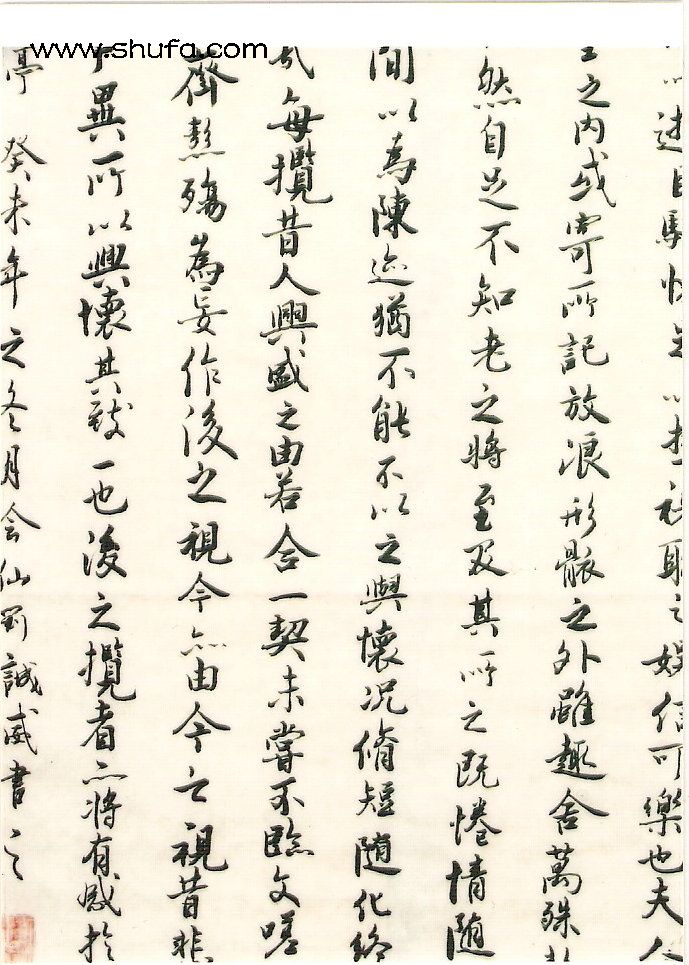 www.shufa.com
以遊目騁怀足以极視聽之娛信可樂也夫人
之内或寄所記放浪形骸之外雖趣舍萬殊
然自足不知老之將至及其所之既惓情随
間以為陳迹猶不能不以之興懷况脩短随化終
每攬昔人興感之由若合一契未嘗不臨文嗟
齊彭殤為妄作後之視今亦由今之視昔悲
異所以興懷其致一也後之攬者亦將有感於
亭 癸未年之冬月会仙劉誠威書之